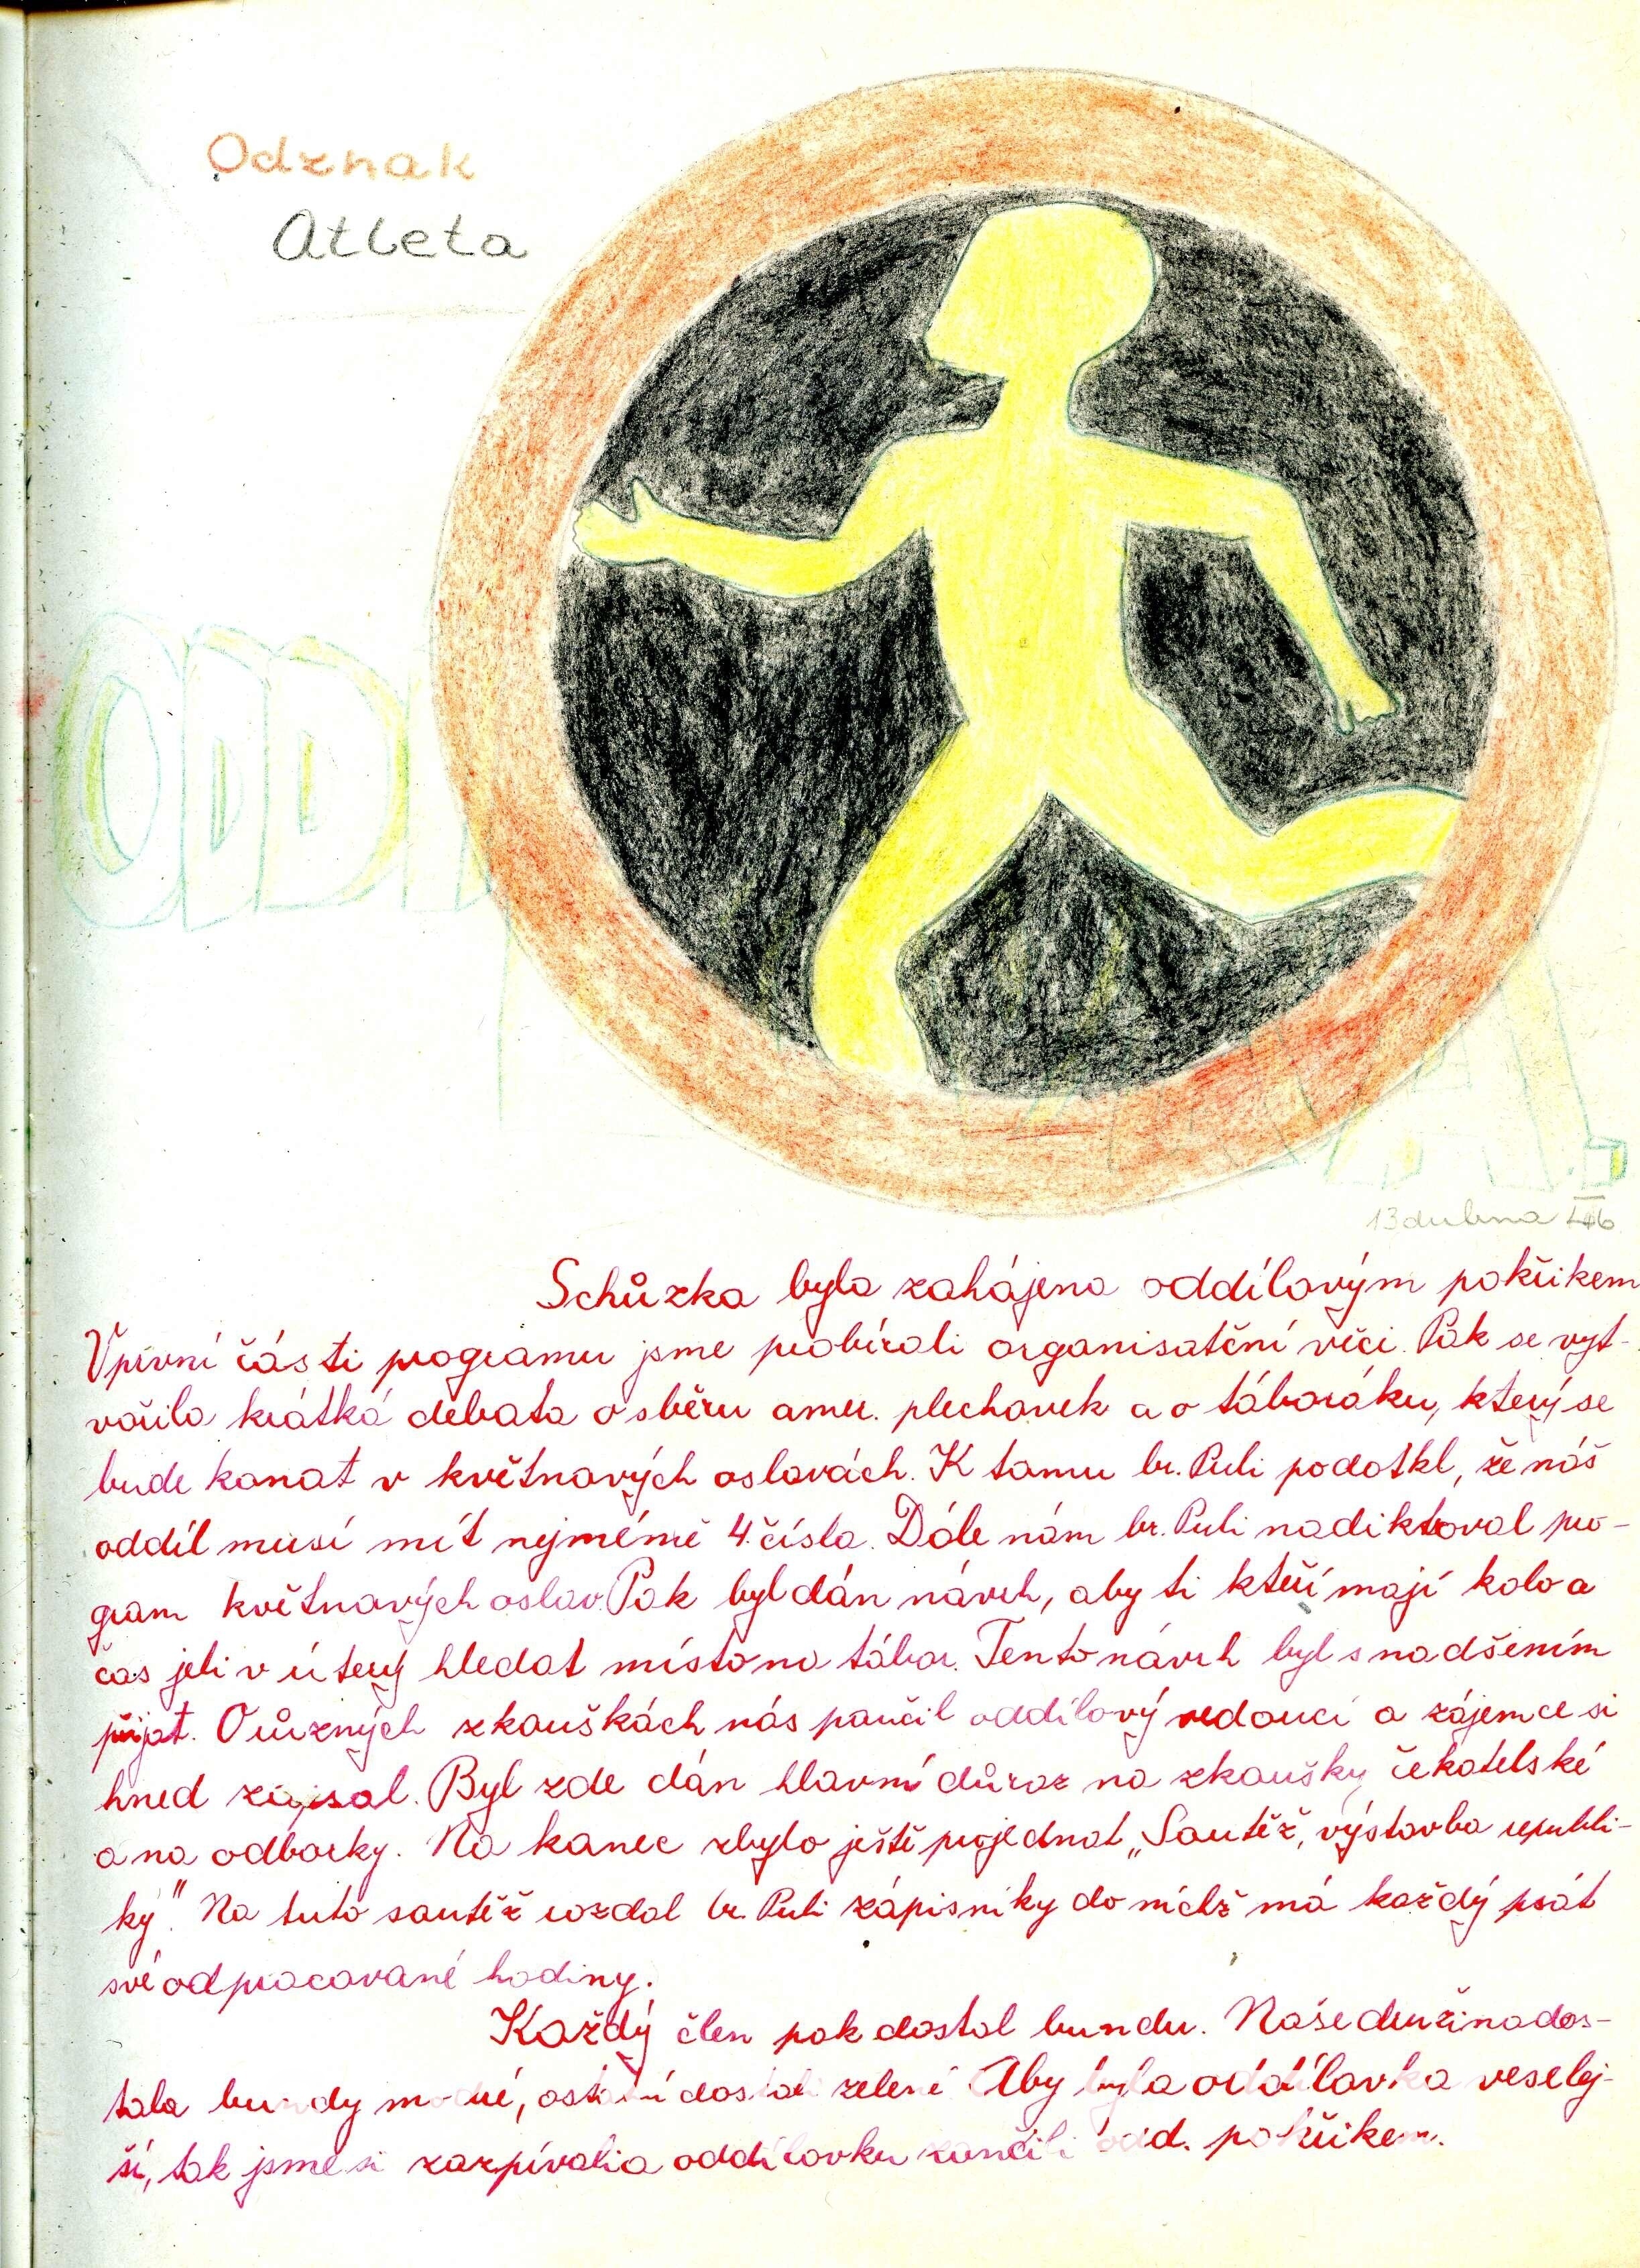 Odznak
Atleta
ODDÍ
13 dubna
Schůzka byla zahájena oddílovým pokřikem
V první části programu jsme probírali organisační věci. Pak se vyt-
vořila krátká debata o sběru amer. plechovek a o táboráku, který se
bude konat v květnových oslavách. K tomu br. Puli podotkl, že náš
oddíl musí mít nejméně 4 čísla. Dále nám br. Puli nadiktoval pro-
gram květnových oslav. Pak byl dán návrh, aby ti kteří mají kolo a
čas jeli v úterý hledat místo na tábor. Tento návrh byl s nadšením
přijat. O různých zkouškách nás poučil oddílový vedoucí a zájemce si
hned zapisal. Byl zde dán hlavní důraz na zkoušky čekatelské
a na odborky. Na konec zbylo ještě projednat „Soutěž, výstavba republi-
ky". Na tuto soutěž rozdal br. Puli zápisníky do nichž má každý psát
své odpracované hodiny.
Každý člen pak dostal bundu. Naše družina dos-
tala bundy modré, ostatní dostali zelené. Aby byla oddílovka veselej-
ší, tak jsme si zazpívali a oddílovku zančili odd. pokřikem.